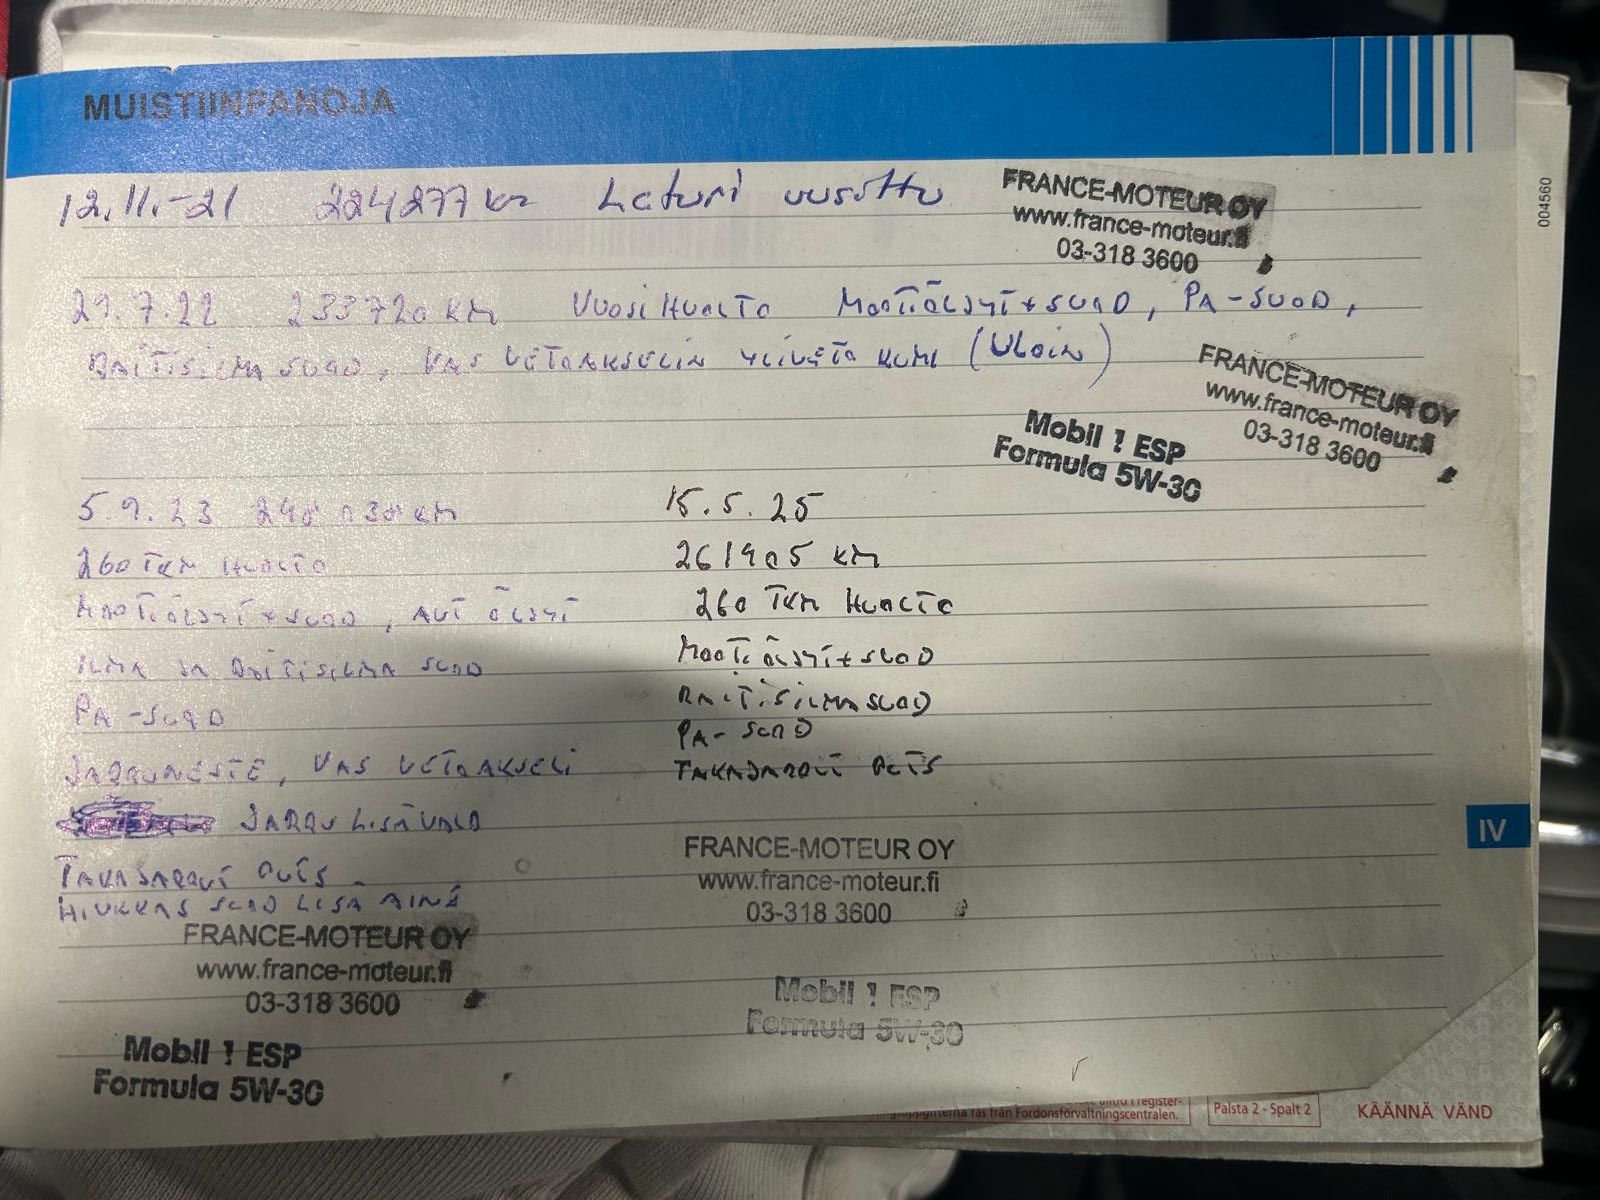 MUISTIINPANOJA
12.11.-21 224277 km Laturi uusittu
FRANCE-MOTEUR OY
www.france-moteur.fi
03-318 3600
29.7.22 233720 KM VUOSIHUOLTO MOOTTIÖLJYT+SUOD, PA-SUOD,
RAITISILMA SUOD, VAS VETOAKSELIN YLIVETO KUMI (ULOIN)
FRANCE-MOTEUR OY
www.france-moteur.fi
03-318 3600
Mobil 1 ESP
Formula 5W-30
5.9.23 KM
260 TKM HUOLTO
MOOTIÖLJYT+SUOD, ÖLJYT
ILMA JA RAITISILMA SUOD
PA-SUOD
JARRUNESTE, VAS VETOAKSELI
JARRU LISÄVALO
TAKAJARRUT PUTS
HIUKKAS SUOD LISÄ AINE
FRANCE-MOTEUR OY
www.france-moteur.fi
03-318 3600
Mobil 1 ESP
Formula 5W-30
15.5.25
261905 KM
260 TKM HUOLTO
MOOTIÖLJYT+SUOD
RAITISILMASUOD
PA-SUOD
TAKAJARRUT PUTS
FRANCE-MOTEUR OY
www.france-moteur.fi
03-318 3600
Mobil 1 ESP
Formula 5W-30
IV
004560
fås från Fordonsförvaltningscentralen.
Palsta 2 - Spalt 2
KÄÄNNÄ VÄND